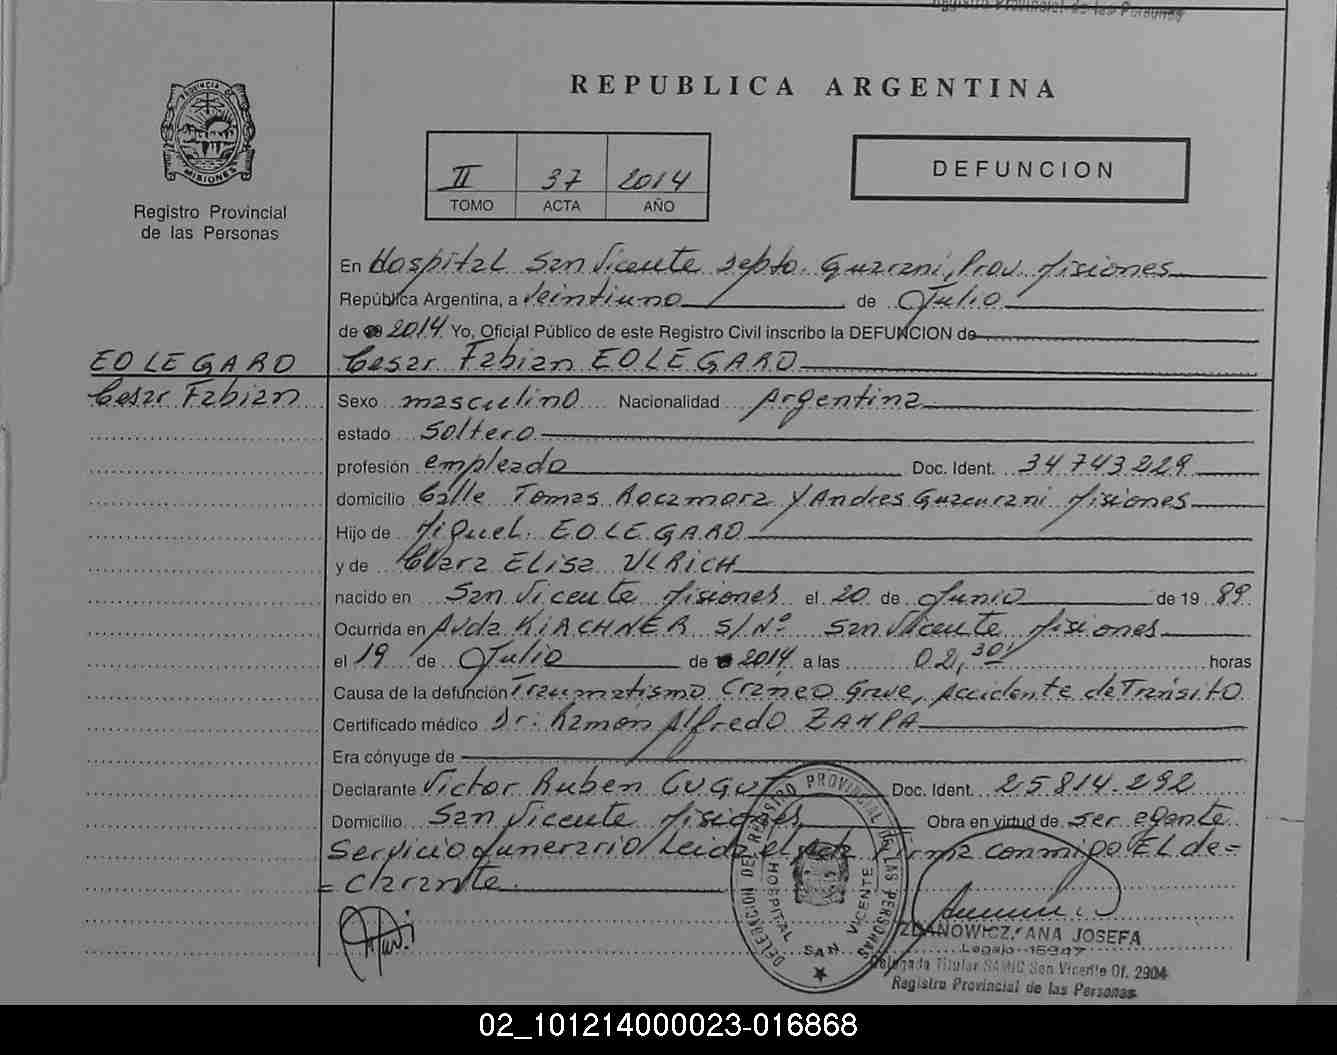 Registro Provincial de las Personas
REPUBLICA ARGENTINA
PROVINCIA DE
MISIONES
Registro Provincial
de las Personas
II 37 2014
TOMO ACTA AÑO
DEFUNCION
En Hospital San Vicente Depto. Guarani, Prov. Misiones
República Argentina, a Veintiuno de Julio
de 2014 Yo, Oficial Público de este Registro Civil inscribo la DEFUNCION de
EOLEGARD Cesar Fabian EOLEGARD
Cesar Fabian
Sexo masculino Nacionalidad Argentina
estado Soltero
profesión empleado Doc. Ident. 34743229
domicilio Calle Tomas Rocamora y Andres Guacurani Misiones
Hijo de Miguel EOLEGARD
y de Clara Elisa ULRICH
nacido en San Vicente Misiones el 20 de Junio de 19 89
Ocurrida en Avda KIRCHNER S/Nº San Vicente Misiones
el 19 de Julio de 2014 a las 02,30 horas
Causa de la defunción Traumatismo Craneo Grave, Accidente de Tránsito
Certificado médico Dr: Ramón Alfredo ZAMPA
Era cónyuge de
Declarante Victor Ruben Doc. Ident. 25814.292
Domicilio San Vicente Misiones Obra en virtud de ser agente
Servicio funerario Leida el acta firma conmigo El de=
=clarante
DELEGACION DEL REGISTRO PROVINCIAL DE LAS PERSONAS
HOSPITAL SAN VICENTE
ZDANOWICZ, ANA JOSEFA
Legajo 15347
Delegada Titular SAMIC San Vicente Of. 2904
Registro Provincial de las Personas
02_101214000023-016868